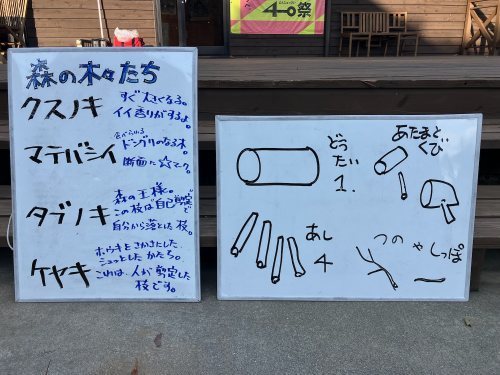 40祭
森の木々たち
クスノキ
すぐ大きくなる。
イイ香りがするよ。
マテバシイ
食べられる
ドングリのなる木。
断面に☆マーク。
タブノキ
森の王様。
この枝は自己剪定で
自分から落とした枝。
ケヤキ
ホウキをさかさにした
シュッとしたかたち。
これは、人が剪定した
枝です。
どうたい
1.
あし
4
あたまと、
くび
つの や しっぽ